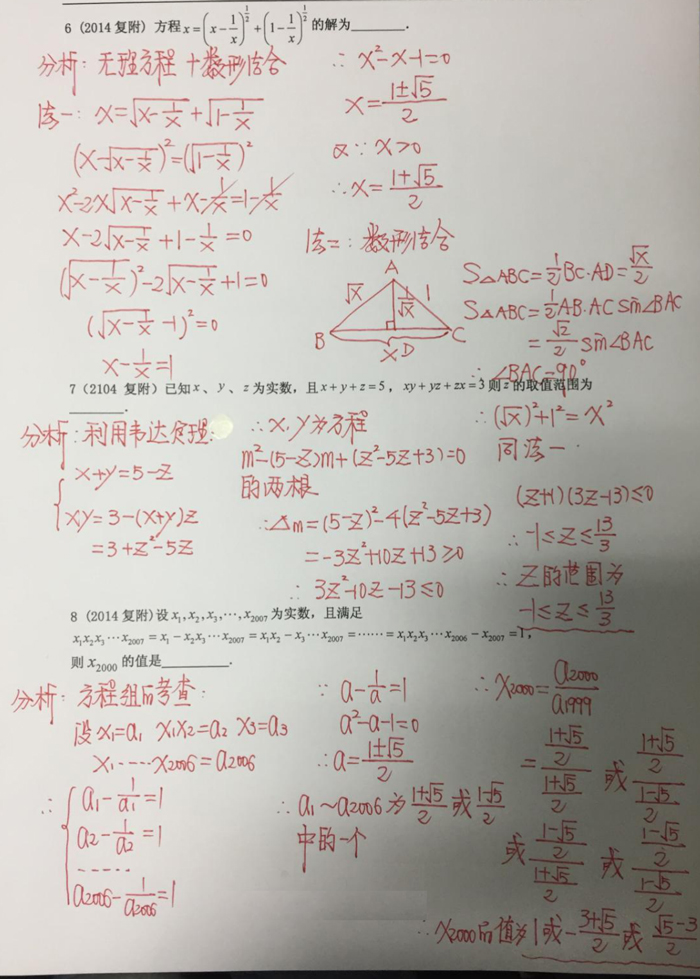 6 (2014 复附) 方程 x = (x - 1/x)^(1/2) + (1 - 1/x)^(1/2) 的解为________.
分析: 无理方程 + 数形结合
法一: x = √(x - 1/x) + √(1 - 1/x)
(x - √(x - 1/x))² = (√(1 - 1/x))²
x² - 2x√(x - 1/x) + x - 1/x = 1 - 1/x
x - 2√(x - 1/x) + 1 - 1/x = 0
(√(x - 1/x))² - 2√(x - 1/x) + 1 = 0
(√(x - 1/x) - 1)² = 0
x - 1/x = 1
∴ x² - x - 1 = 0
x = (1±√5)/2
又∵ x > 0
∴ x = (1+√5)/2
法二: 数形结合
A
√x
1/√x
1
B
D
C
x
S△ABC = 1/2 BC·AD = √x/2
S△ABC = 1/2 AB·AC sin∠BAC
= √x/2 sin∠BAC
∴ ∠BAC = 90°
∴ (√x)² + 1² = x²
同法一.
7 (2104 复附) 已知 x、y、z 为实数, 且 x + y + z = 5, xy + yz + zx = 3 则 z 的取值范围为
________.
分析: 利用韦达定理:
x + y = 5 - z
xy = 3 - (x+y)z
= 3 + z² - 5z
∴ x, y 为方程
m² - (5-z)m + (z² - 5z + 3) = 0
的两根
∴ △m = (5-z)² - 4(z² - 5z + 3)
= -3z² + 10z + 13 ≥ 0
∴ 3z² - 10z - 13 ≤ 0
(z+1)(3z-13) ≤ 0
∴ -1 ≤ z ≤ 13/3
∴ z 的范围为
-1 ≤ z ≤ 13/3
8 (2014 复附) 设 x₁, x₂, x₃, ⋯, x₂₀₀₇ 为实数, 且满足
x₁x₂x₃⋯x₂₀₀₇ = x₁ - x₂x₃⋯x₂₀₀₇ = x₁x₂ - x₃⋯x₂₀₀₇ = ⋯⋯ = x₁x₂x₃⋯x₂₀₀₆ - x₂₀₀₇ = 1,
则 x₂₀₀₀ 的值是________.
分析: 方程组的考查:
设 x₁ = a₁ x₁x₂ = a₂ x₃ = a₃
x₁⋯⋯x₂₀₀₆ = a₂₀₀₆
∴ a₁ - 1/a₁ = 1
a₂ - 1/a₂ = 1
⋯⋯
a₂₀₀₆ - 1/a₂₀₀₆ = 1
∵ a - 1/a = 1
a² - a - 1 = 0
∴ a = (1±√5)/2
∴ a₁ ~ a₂₀₀₆ 为 (1+√5)/2 或 (1-√5)/2
中的一个
∴ x₂₀₀₀ = a₂₀₀₀/a₁₉₉₉
= ((1+√5)/2)/((1+√5)/2) 或 ((1+√5)/2)/((1-√5)/2)
或 ((1-√5)/2)/((1+√5)/2) 或 ((1-√5)/2)/((1-√5)/2)
∴ x₂₀₀₀的值为 1 或 -(3+√5)/2 或 (√5-3)/2